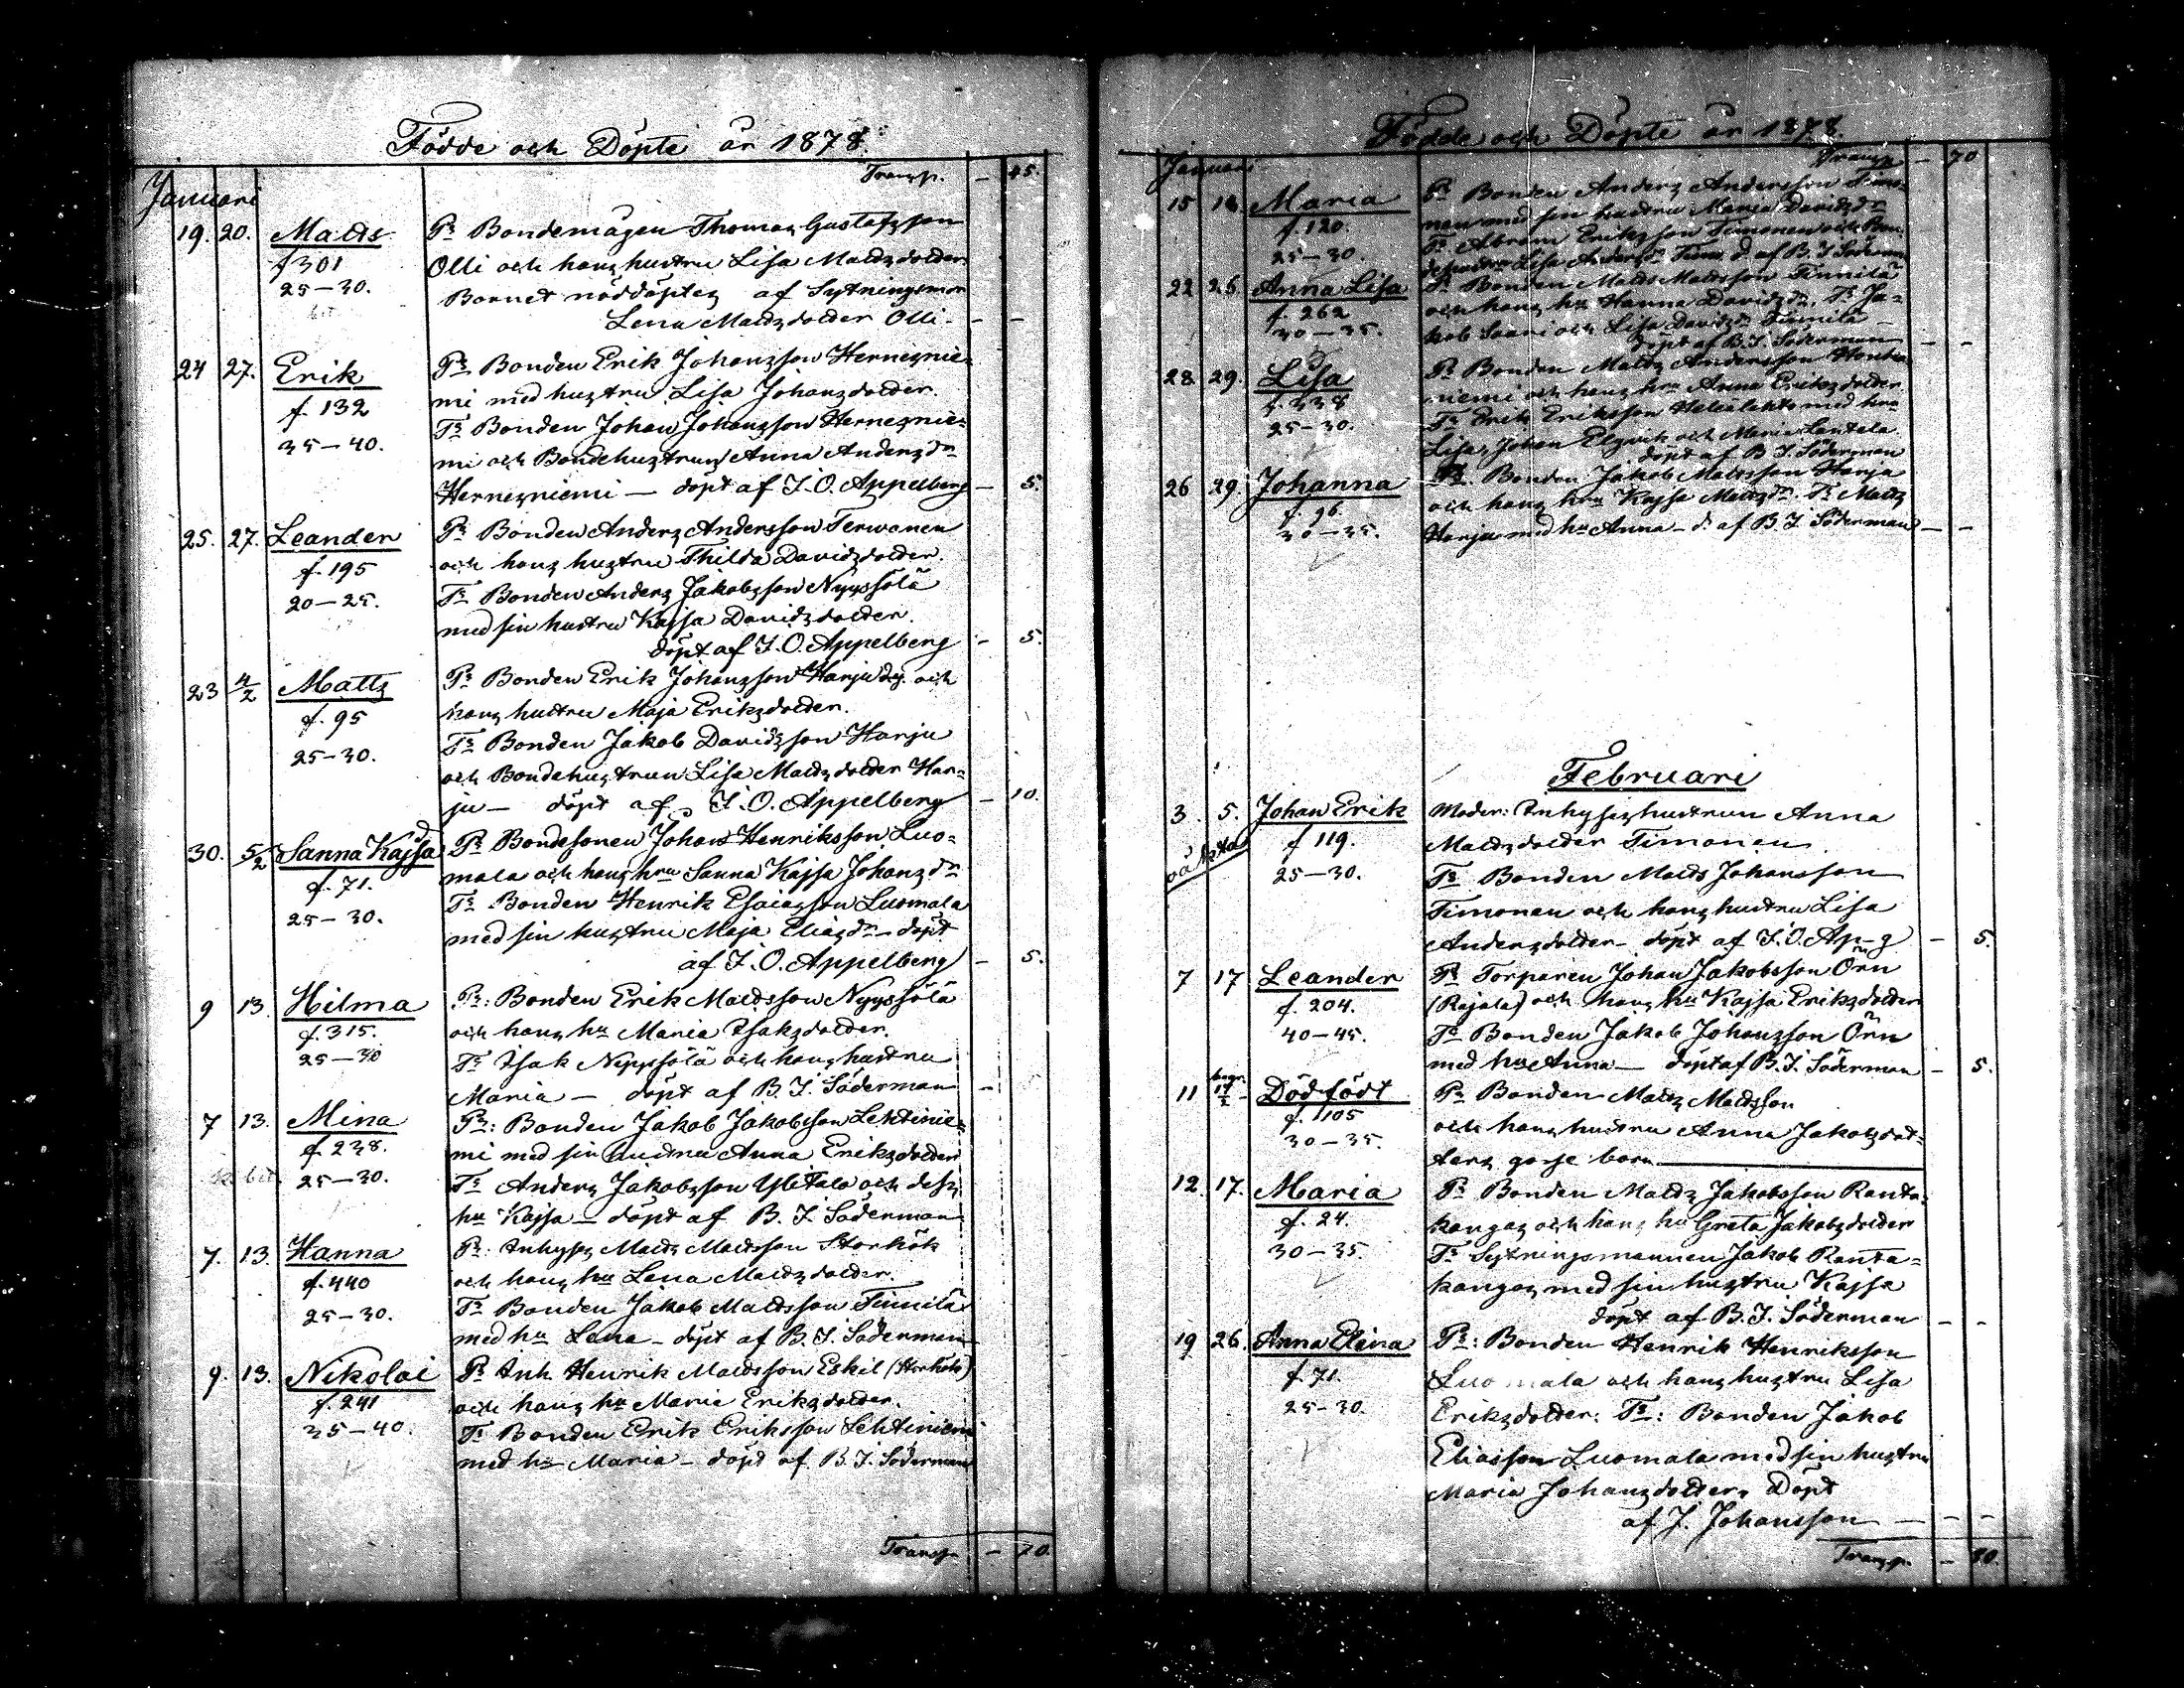 Födde och Döpte år 1878.
Januari
Transp. — 45.
19. 20. Matts Pr Bondemågen Thomas Gustafsson
f 301 Olli och hans hustru Lisa Mattsdotter.
25–30. Barnet nöddöptes af Sytningsmor
Lena Mattsdotter Olli — — —
24 27. Erik Pr Bonden Erik Johansson Hernesnie-
f. 132 mi med hustru Lisa Johansdotter.
35–40. Tr Bonden Johan Johansson Hernesnie-
mi och Bondehustrun Anna Andersdr
Hernesniemi — döpt af J. O. Appelberg — 5.
25. 27. Leander Pr Bonden Anders Andersson Terwonen
f. 195 och hans hustru Thilda Davidsdotter.
20–25. Tr Bonden Anders Jakobsson Nyyssölä
med sin hustru Kajsa Davidsdotter.
döpt af J. O. Appelberg — 5.
23 4/2 Matts Pr Bonden Erik Johansson Harju och
f. 95 hans hustru Maja Eriksdotter.
25–30. Tr Bonden Jakob Davidsson Harju
och Bondehustrun Lisa Mattsdotter Har-
ju — döpt af J. O. Appelberg — 10.
30. 5/2 Sanna Kajsa Pr Bondesonen Johan Henriksson Luo-
f. 71. mala och hans hru Sanna Kajsa Johansdr
25–30. Tr Bonden Henrik Esaiasson Luomala
med sin hustru Maja Eliasdr – döpt
af J. O. Appelberg — 5.
9 13. Hilma Pr: Bonden Erik Mattsson Nyyssölä
f. 315. och hans hu Maria Isaksdotter.
25–30 Tr Isak Nyyssölä och hans hustru
Maria — döpt af B. J. Söderman —
7 13. Mina Pr: Bonden Jakob Jakobsson Lehtinie-
f. 238. mi med sin hustru Anna Eriksdotter
25–30. Tr Anders Jakobsson Ylitalo och dess
hu Kajsa — döpt af B. J. Söderman
7. 13. Hanna Pr: Inhyses Matts Mattsson Storkök
f. 440 och hans hu Lena Mattsdotter.
25–30. Tr Bonden Jakob Mattsson Finnilä
med hu Lena – döpt af B. J. Söderman
9. 13. Nikolai Pr Inh Henrik Mattsson Eskil (Storkök)
f. 241 och hans hu Maria Eriksdotter.
35–40. Tr Bonden Erik Eriksson Lehtiniemi
med hu Maria – döpt af B. J. Söderman
Transp. — 70.
Födde och Döpte år 1878.
Januari Transp — 70
15 16 Maria Pr Bonden Anders Andersson Timo-
f. 120. nen med sin hustru Maria Davidsdr
25–30. Tr Abram Eriksson Timonen och Bon-
dehustrun Lisa Andersdr Timo d. af B. J. Söderman
22 26 Anna Lisa Pr Bonden Matts Mattsson Finnilä
f. 262 och hans hu Hanna Davidsdr. Tr Ja-
30–35. kob Saari och Lisa Davidsdr Finnilä —
döpt af B. J. Söderman — —
28 29. Lisa Pr Bonden Matts Andersson
f. 338 niemi och hans hru Anna Eriksdotter
25–30. Tr Erik Eriksson med hru
Lisa, Johan och Maria Lantela
döpt af B J. Söderman
26 29. Johanna Pr. Bonden Jakob Mattsson Harju
f. 96. och hans hru Kajsa Mattsdr. Tr Matts
30–35. Harju med hu Anna – d. af B. J. Söderman — —
Februari
3. 5. Johan Erik Moder: Inhyseshustrun Anna
oäkta f 119. Mattsdotter Timonen.
25–30. Tr Bonden Matts Johansson
Timonen och hans hustru Lisa
Andersdotter – döpt af J. O. Ap–g — 5.
7 17 Leander Pr Torparen Johan Jakobsson Örn
f. 204. (Rajala) och hans hu Kajsa Eriksdotter
40–45. Tr Bonden Jakob Johansson Örn
med hu Anna — döpt af B. J. Söderman — 5.
11 begr. 17/2 Dödfödt Pr Bonden Matts Mattsson
f. 1105 och hans hustru Anna Jakobsdot-
30–35. ters gosse barn
12. 17. Maria Pr Bonden Matts Jakobsson Ranta-
f. 24. kangas och hans hu Greta Jakobsdotter
30–35. Tr Sytningsmannen Jakob Ranta-
kangas med sin hustru Kajsa
döpt af B. J. Söderman — —
19 26. Anna Elina Pr: Bonden Henrik Henriksson
f. 71. Luomala och hans hustru Lisa
25–30. Eriksdotter. Tr: Bonden Jakob
Eliasson Luomala med sin hustru
Maria Johansdotter. Döpt
af J. Johansson — — —
Transp. — 80.